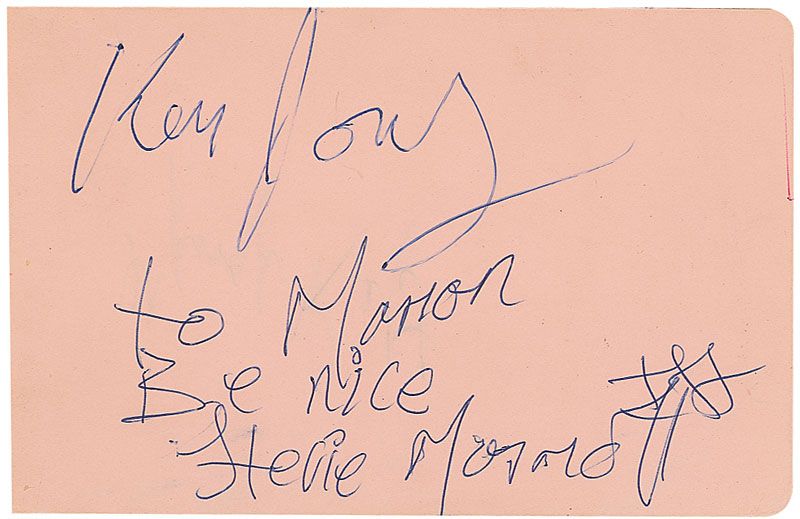 Ken Jones
to Marion
Be nice
Stevie Marriott